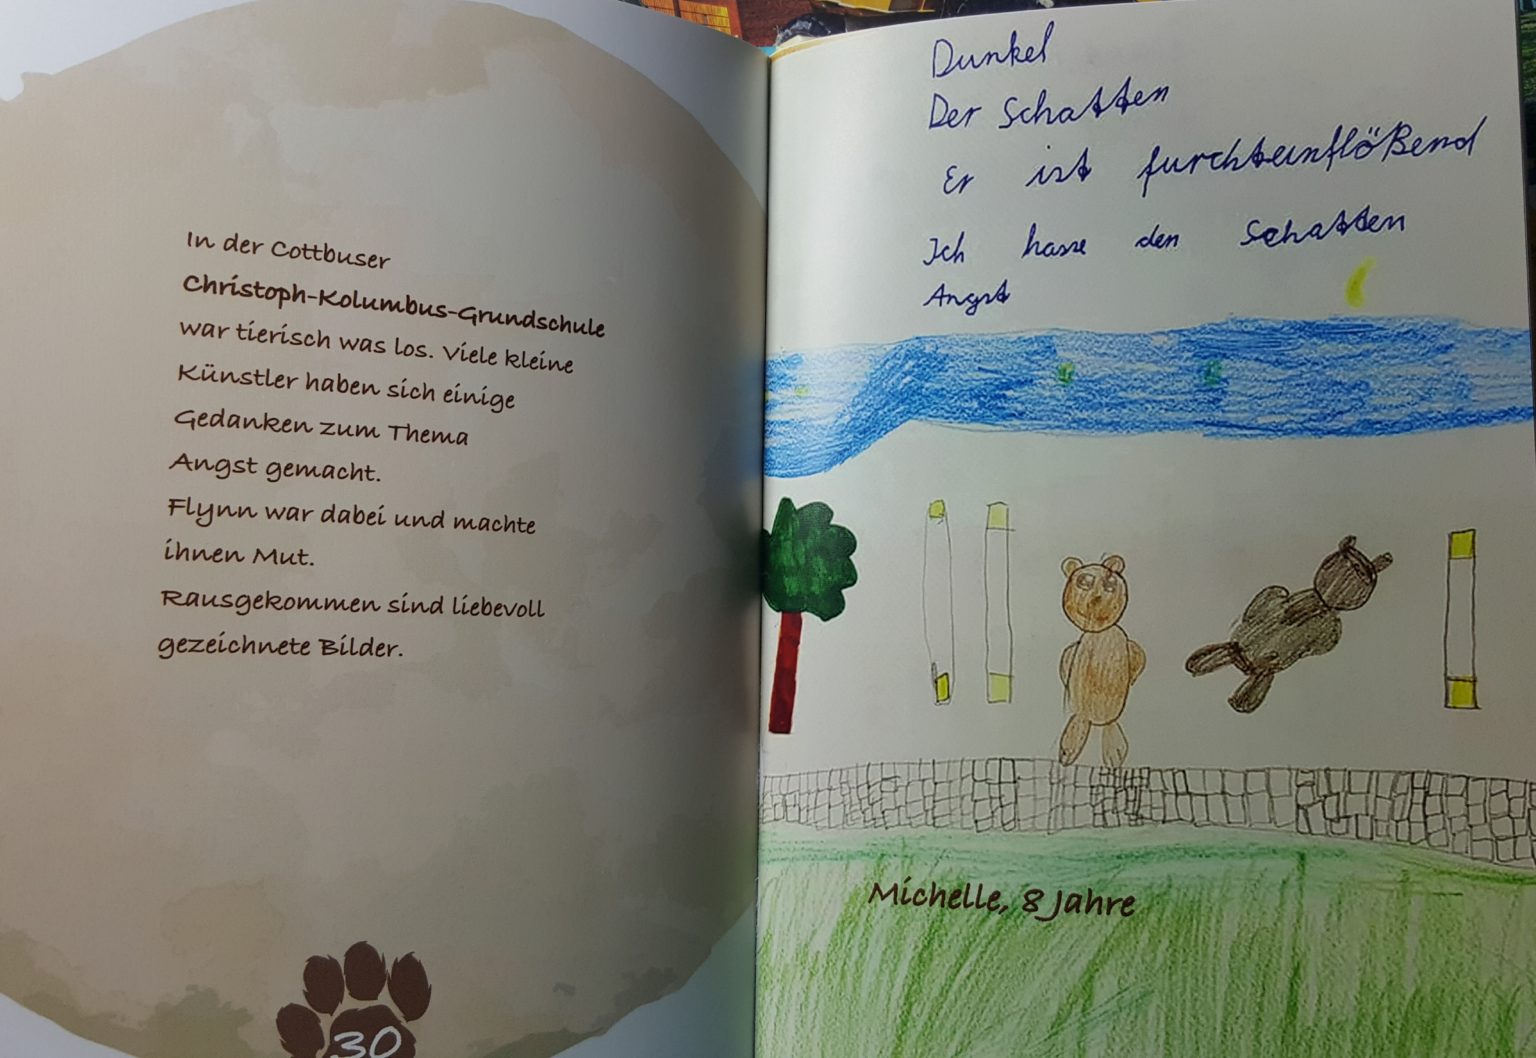 In der Cottbuser
Christoph-Kolumbus-Grundschule
war tierisch was los. Viele kleine
Künstler haben sich einige
Gedanken zum Thema
Angst gemacht.
Flynn war dabei und machte
ihnen Mut.
Rausgekommen sind liebevoll
gezeichnete Bilder.
30
Dunkel
Der Schatten
Er ist furchteinflößend
Ich hasse den Schatten
Angst
Michelle, 8 Jahre